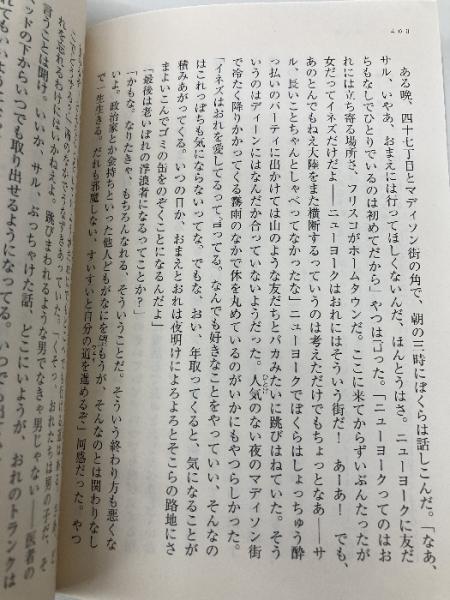 403
ある晩、四十七丁目とマディソン街の角で、朝の三時にぼくらは話しこんだ。「なあ、
サル、いやあ、おまえには行ってほしくないんだ、ほんとうはさ。ニューヨークに友だ
ちもなしでひとりでいるのは初めてだから」やつは言った。「ニューヨークってのはお
れには立ち寄る場所さ、フリスコがホームタウンだ。ここに来てからずいぶんたったが
女だってイネズだけだよ——ニューヨークはおれにはそういう街だ！　あーあ！　でも、
あのとんでもねえ大陸をまた横断するっていうのは考えただけでもちょっとなあ——サ
ル、長いことちゃんとしゃべってなかったな」ニューヨークでぼくらはしょっちゅう酔
っ払いのパーティに出かけては山のような友だちとバカみたいに跳びはねていた。そう
いうのはディーンにはなんだか合っていないようだった。人気のない夜のマディソン街
で冷たく降りかかってくる霧雨のなかで体を丸めているのがいかにもやつらしかった。
「イネズはおれを愛してるって言ってる、なんでも好きなことをやっていい、そんなの
はこれっぽちも気にならないってな。でもな、おい、年取ってくると、気になることが
積みあがってくる。いつの日か、おまえとおれは夜明けによろよろとそこらの路地にさ
まよいこんでゴミの缶をのぞくことになるんだよ」
「最後は老いぼれの浮浪者になるってことか？」
「かもな。なりたきゃ、もちろんなれる、そういうことだ。そういう終わり方も悪くな
いよ。政治家とか金持ちといった他人どもがなにを望もうが、そんなのとは関わりなし
で一生生きる。だれも邪魔しない、すいすいと自分の道を進めるぞ」同感だった。やつ
れを忘れるわけにはいかねえよ。跳びまわれるような男でなきゃ男じゃない
言うことは聞け。いいか、サル、ぶっちゃけた話、どこにいようが、おれのトランクは
ッドの下からいつでも取り出せるようになってる。